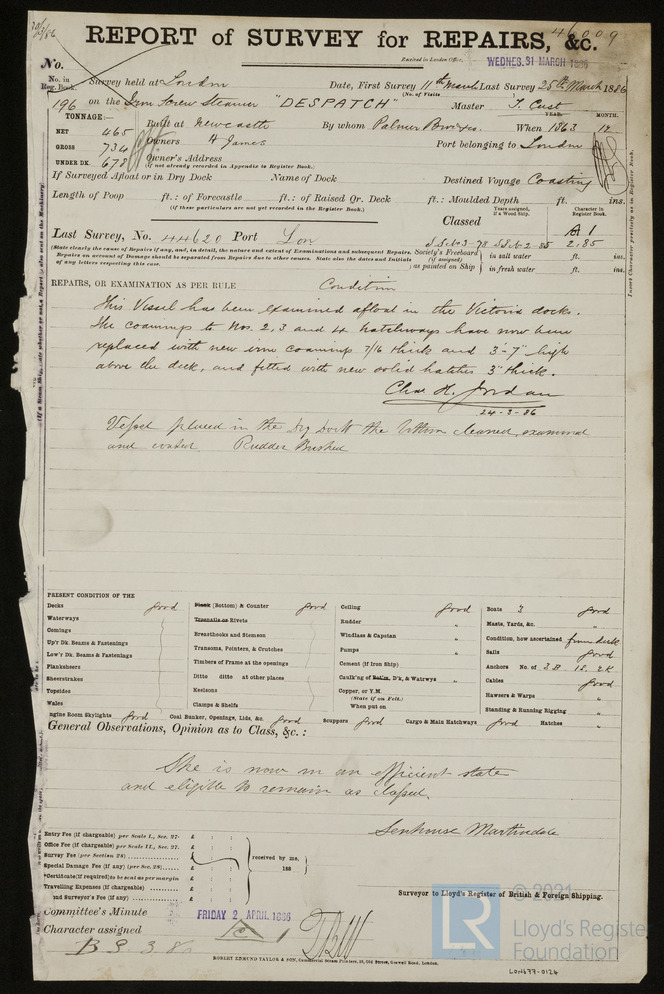 46009
REPORT of SURVEY for REPAIRS, &c.
Received in London Office, WEDNES. 31 MARCH 1886
No.
No. in Reg. Book. Survey held at London Date, First Survey 11th March Last Survey 25th March 1886
(No. of Visits )
196 on the Iron Screw Steamer "DESPATCH" Master J. Cust
TONNAGE:— Built at Newcastle By whom Palmer Bros & Co. When YEAR. 1863 MONTH. 12
NET 465
GROSS 734 Owners H James Port belonging to London
UNDER DK. 678 Owner's Address
(If not already recorded in Appendix to Register Book.)
If Surveyed Afloat or in Dry Dock Name of Dock Destined Voyage Coasting
Length of Poop ft.: of Forecastle ft.: of Raised Qr. Deck ft.: Moulded Depth ft. ins.
(If these particulars are not yet recorded in the Register Book.)
Years assigned, if a Wood Ship. Character in Register Book.
Classed A 1
Last Survey, No. 44620 Port Lon 2,85
(State clearly the cause of Repairs if any, and, in detail, the nature and extent of Examinations and subsequent Repairs. Repairs on account of Damage should be separated from Repairs due to other causes. State also the dates and Initials of any letters respecting this case.
Society's Freeboard (if assigned) as painted on Ship in salt water ft. ins.
in fresh water ft. ins.
REPAIRS, OR EXAMINATION AS PER RULE Condition
This Vessel has been examined afloat in the Victoria docks.
The coamings to Nos. 2, 3 and 4 hatchways have now been
replaced with new iron coamings 7/16 thick and 3'-7" high
above the deck, and fitted with new solid hatches 3" thick.
Chas H. Jordan
24-3-86
Vessel placed in the Dry Dock the bottom cleaned, examined
and coated. Rudder Bushed
PRESENT CONDITION OF THE
Decks good
Waterways
Comings
Up'r Dk. Beams & Fastenings
Low'r Dk. Beams & Fastenings
Planksheers
Sheerstrakes
Topsides
Wales
Plank (Bottom) & Counter good
Treenails or Rivets
Breasthooks and Stemson
Transoms, Pointers, & Crutches
Timbers of Frame at the openings
Ditto ditto at other places
Keelsons
Clamps & Shelfs
Ceiling good
Rudder "
Windlass & Capstan "
Pumps "
Cement (if Iron Ship) "
Caulk'ng of Bottm, D'k, & Watrwys "
Copper, or Y.M.
(State if on Felt.)
When put on
Boats 3 good
Masts, Yards, &c. "
Condition, how ascertained from deck
Sails good
Anchors No. of 3 B. 1 S. 2 K
Cables good
Hawsers & Warps "
Standing & Running Rigging "
Engine Room Skylights good Coal Bunker, Openings, Lids, &c. good Scuppers good Cargo & Main Hatchways good Hatches "
General Observations, Opinion as to Class, &c.:
She is now in an efficient state
and eligible to remain as classed.
Senhouse Martindale
Entry Fee (if chargeable) per Scale I., Sec. 27- £ : :
Office Fee (if chargeable) per Scale II., Sec. 27. £ : :
Survey Fee (per Section 28) £ : :
Special Damage Fee (if any) (per Sec. 28) £ : :
*Certificate (if required) to be sent as per margin
Travelling Expenses (if chargeable) £ : :
2nd Surveyor's Fee (if any) £ : :
received by me,
188
Surveyor to Lloyd's Register of British & Foreign Shipping.
Committee's Minute FRIDAY 2 APRIL 1886
Character assigned A 1
ROBERT EDMUND TAYLOR & SON, Commercial Steam Printers, 19, Old Street, Goswell Road, London.
LR
© 2021
Lloyd's Register
Foundation
LON677-0124